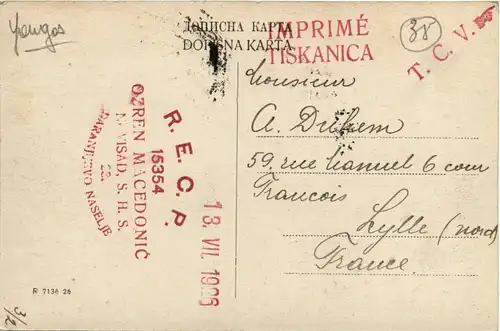 Yougos
ДОПИСНА КАРТА
DOPISNA KARTA
IMPRIMÉ
TISKANICA
38
T. C. V.
Monsieur
A. Duhem
59. rue Manuel 6 cour
Francois
Lylle (nord)
France
R. E. C. P.
15354
OZREN MACEDONIĆ
N. VISAD, S. H. S.
22.
DARANJEVO NASELJE
13. VII. 1926
R 7136 26
3/2